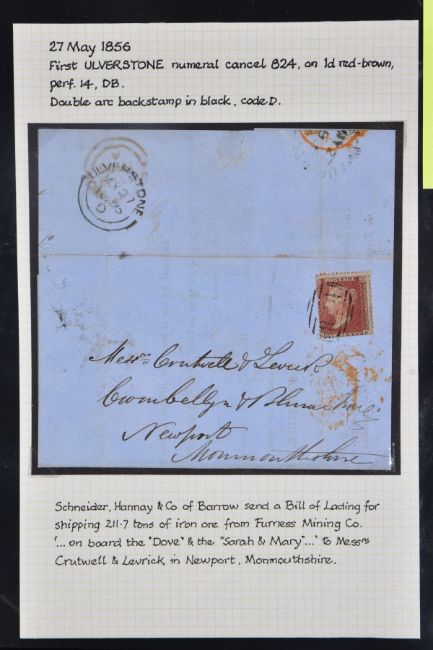 27 May 1856
First ULVERSTONE numeral cancel 824, on 1d red-brown,
perf. 14, DB.
Double arc backstamp in black, code D.
ULVERSTONE
MY 27
1856
D
POSTAGE
Messrs Crutwell & Levick
Newport
Monmouthshire
Schneider, Hannay & Co of Barrow send a Bill of Lading for
shipping 211·7 tons of iron ore from Furness Mining Co.
'... on board the "Dove" & the "Sarah & Mary"...' to Messrs
Crutwell & Levrick, in Newport, Monmouthshire.